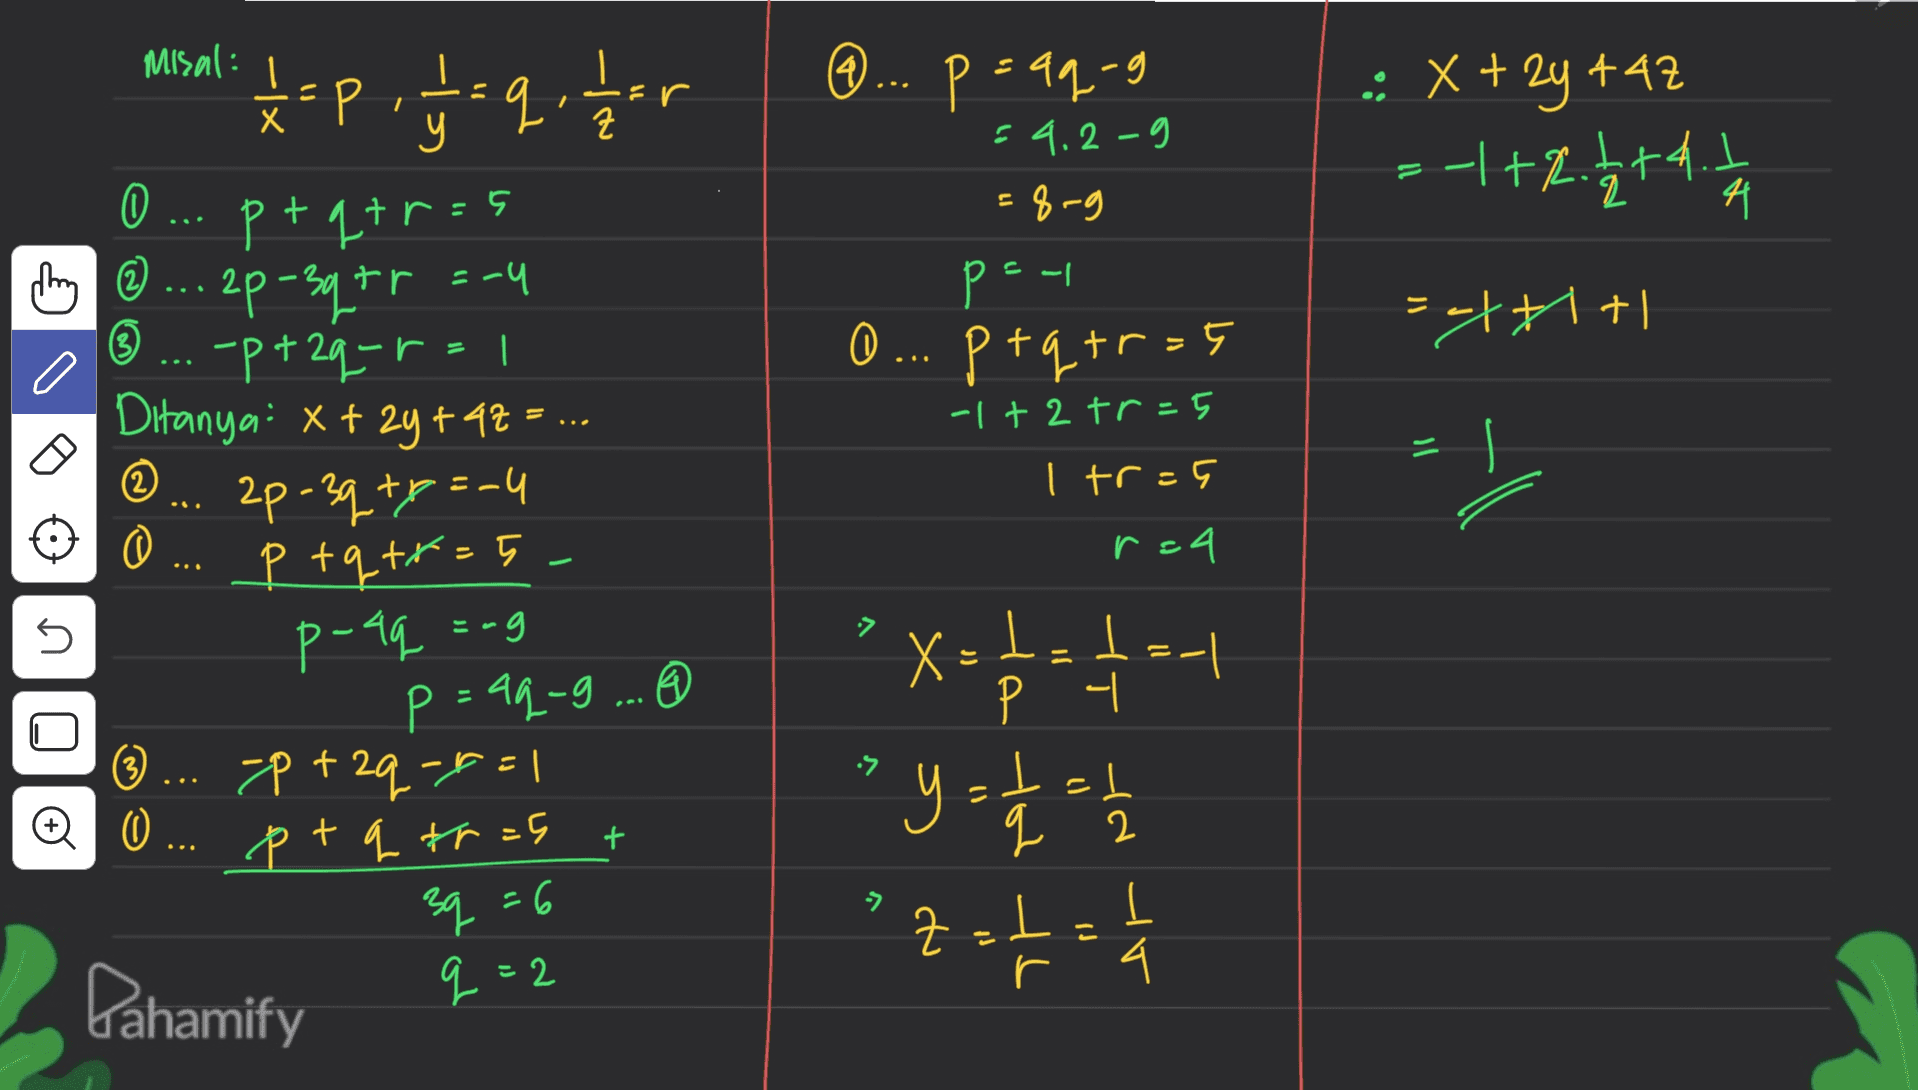 Misal: 1/x = p , 1/y = q , 1/z = r
① ... p + q + r = 5
② ... 2p - 3q + r = -4
③ ... -p + 2q - r = 1
Ditanya: x + 2y + 4z = ...
② ... 2p - 3q + r = -4
① ... p + q + r = 5 -
p - 4q = -9
p = 4q - 9 ... ④
③ ... -p + 2q - r = 1
① ... p + q + r = 5 +
3q = 6
q = 2
④ ... p = 4q - 9
= 4.2 - 9
= 8 - 9
p = -1
① ... p + q + r = 5
-1 + 2 + r = 5
1 + r = 5
r = 4
x = 1/p = 1/-1 = -1
y = 1/q = 1/2
z = 1/r = 1/4
∴ x + 2y + 4z
= -1 + 2. 1/2 + 4. 1/4
= -1 + 1 + 1
= 1
Pahamify